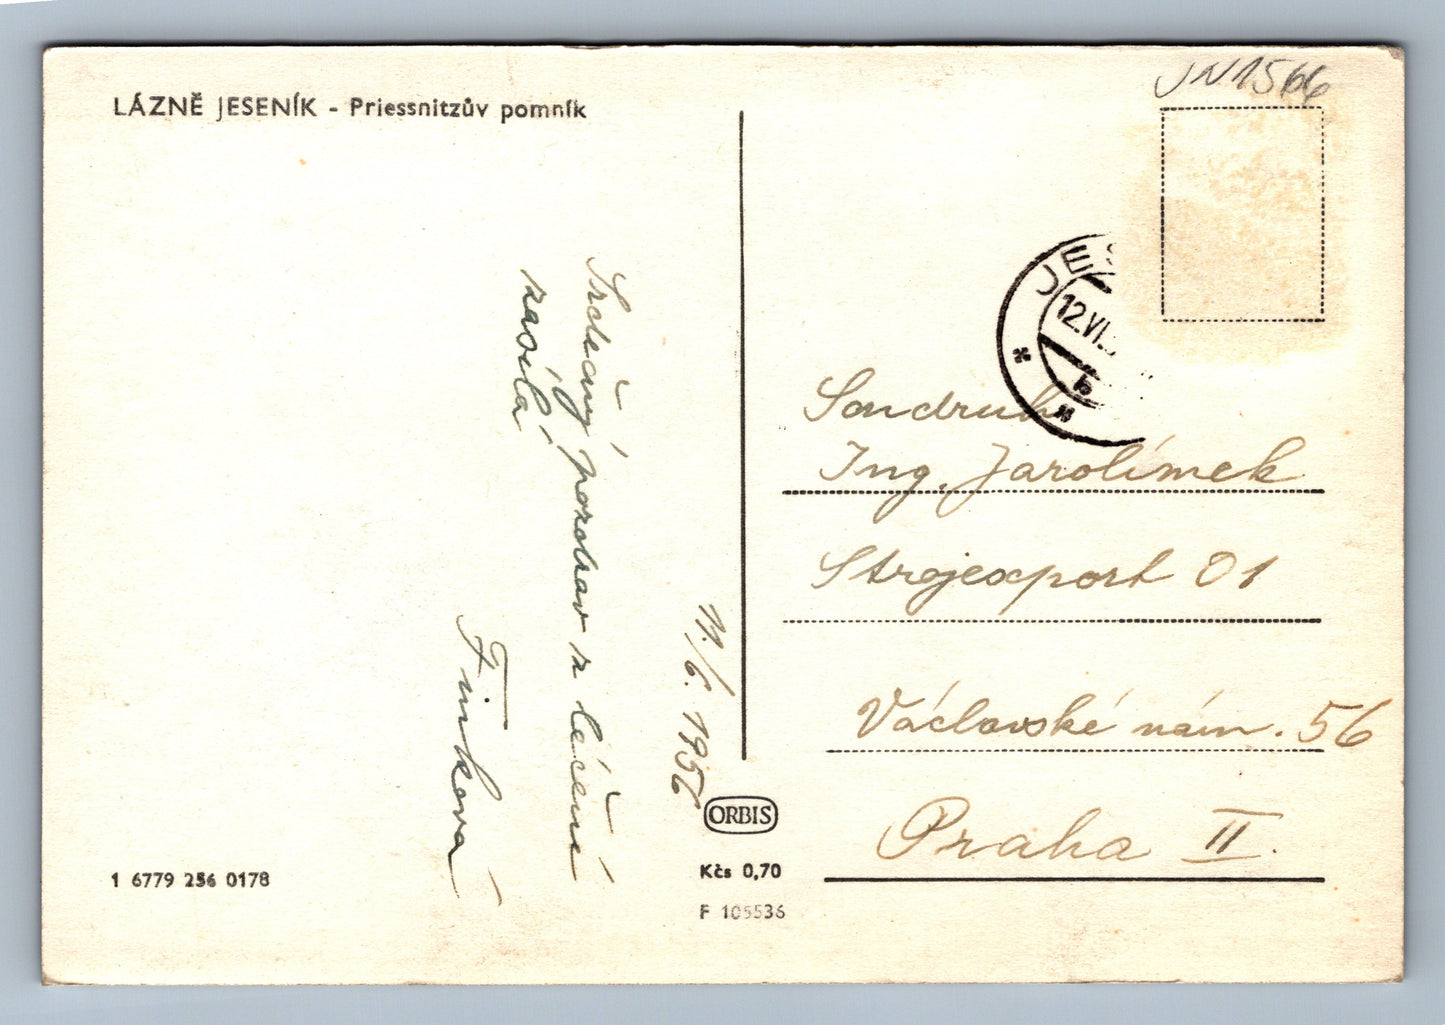 LÁZNĚ JESENÍK - Priessnitzův pomník
JN1566
JES
12.VI.
b
11./6. 1956
Srdečný pozdrav z léčení
zasílá
Finková
Soudruh
Ing. Jarolímek
Strojexport 01
Václavské nám. 56
Praha II.
ORBIS
Kčs 0,70
F 105536
1 6779 256 0178